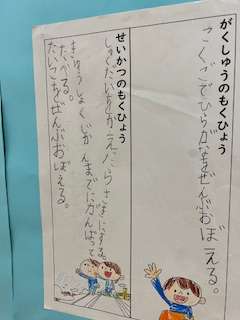 がくしゅうのもくひょう
こくごでひらがなをぜんぶおぼえる。
せいかつのもくひょう
しゅくだいをかえったらさきにする。
きゅうしょくじかんまでにがんばって
たべる。
たいこをぜんぶおぼえる。